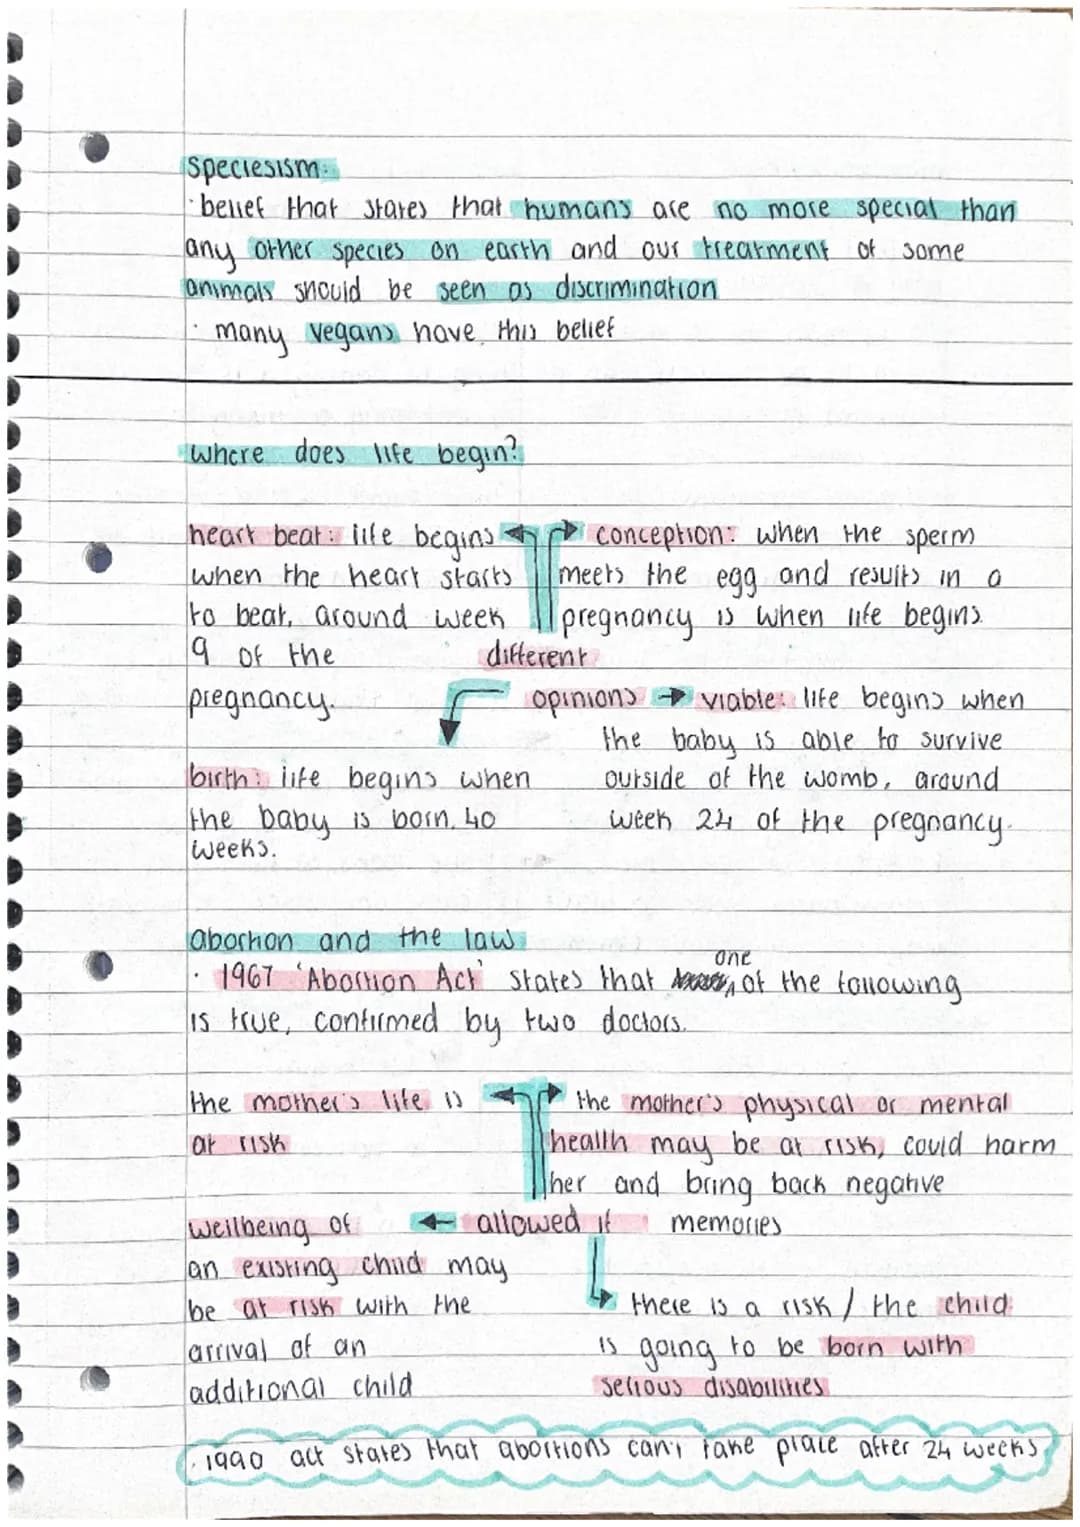 Speciesism:
· belief that states that humans are no more special than
any other species on earth and our treatment of some
animals should be seen as discrimination
· many vegans have this belief
Where does life begin?
heart beat: life begins
when the heart starts
to beat, around week
9 of the
pregnancy.
conception: when the sperm
meets the egg and results in a
pregnancy is when life begins.
different
opinions
viable: life begins when
the baby is able to survive
outside of the womb, around
week 24 of the pregnancy.
birth: life begins when
the baby is born. 40
weeks.
Abortion and the law
· 1967 'Abortion Act' states that one of the following
is true, confirmed by two doctors.
the mother's life is
at risk
the mother's physical or mental
health may be at risk, could harm
her and bring back negative
memories
allowed if
wellbeing of
an existing child may
be at risk with the
arrival of an
additional child
there is a risk / the child
is going to be born with
serious disabilities
· 1990 act states that abortions can't take place after 24 weeks